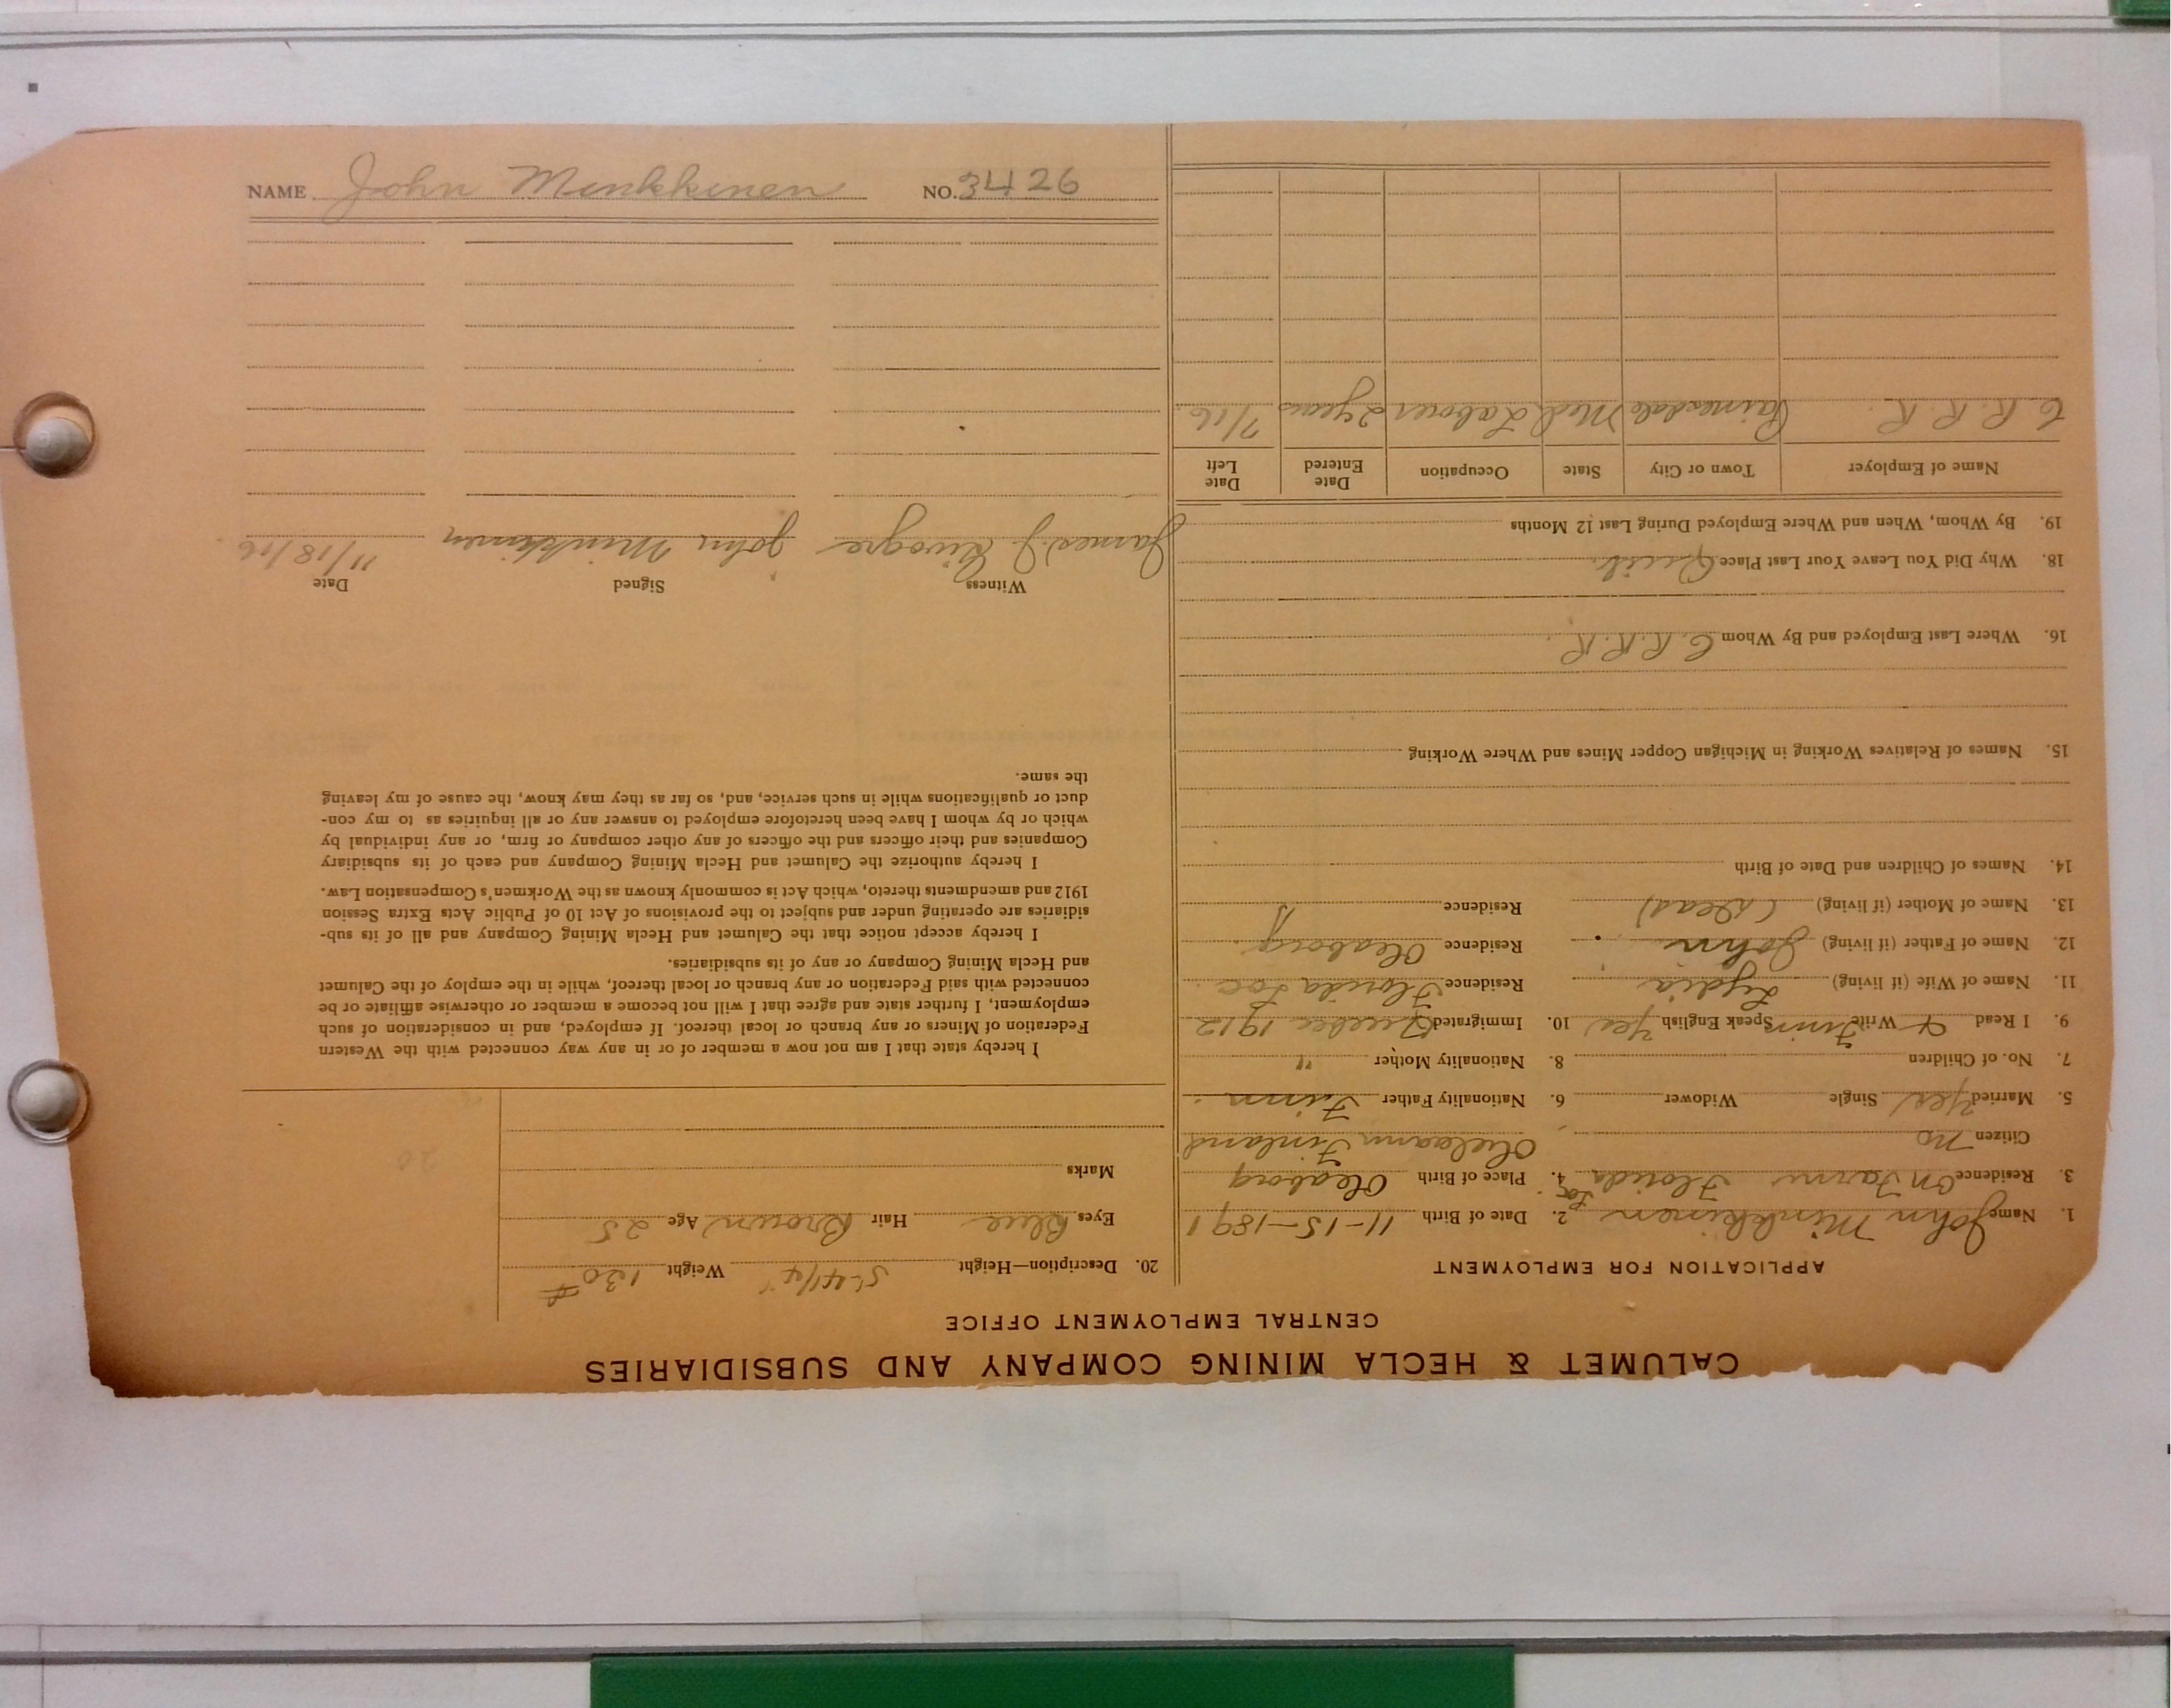 CALUMET & HECLA MINING COMPANY AND SUBSIDIARIES
CENTRAL EMPLOYMENT OFFICE
APPLICATION FOR EMPLOYMENT
1. Name John Minkkinen 2. Date of Birth 11-15-1891
3. Residence On Farm Florida Loc. 4. Place of Birth Oleaborg
Citizen No Finland
5. Married Yes Single Widower 6. Nationality Father Finn
7. No. of Children 8. Nationality Mother "
9. I Read & Write Finn Speak English Yes 10. Immigrated 1912
11. Name of Wife (if living) Lydia Residence Florida Loc.
12. Name of Father (if living) John Residence Oleaborg
13. Name of Mother (if living) (dead) Residence
14. Names of Children and Date of Birth
15. Names of Relatives Working in Michigan Copper Mines and Where Working
16. Where Last Employed and By Whom C.R.R.R.
18. Why Did You Leave Your Last Place Quit
19. By Whom, When and Where Employed During Last 12 Months
Name of Employer Town or City State Occupation Date Entered Date Left
C.R.R.R. Painesdale Mich Laborer 2 years 7/16
20. Description—Height 5'-4 1/4" Weight 130#
Eyes Blue Hair Brown Age 25
Marks
I hereby state that I am not now a member of or in any way connected with the Western
Federation of Miners or any branch or local thereof. If employed, and in consideration of such
employment, I further state and agree that I will not become a member or otherwise affiliate or be
connected with said Federation or any branch or local thereof, while in the employ of the Calumet
and Hecla Mining Company or any of its subsidiaries.
I hereby accept notice that the Calumet and Hecla Mining Company and all of its sub-
sidiaries are operating under and subject to the provisions of Act 10 of Public Acts Extra Session
1912 and amendments thereto, which Act is commonly known as the Workmen's Compensation Law.
I hereby authorize the Calumet and Hecla Mining Company and each of its subsidiary
Companies and their officers and the officers of any other company or firm, or any individual by
which or by whom I have been heretofore employed to answer any or all inquiries as to my con-
duct or qualifications while in such service, and, so far as they may know, the cause of my leaving
the same.
Witness Signed Date
James J. John Minkkinen 11/18/16
NAME John Minkkinen NO. 3426